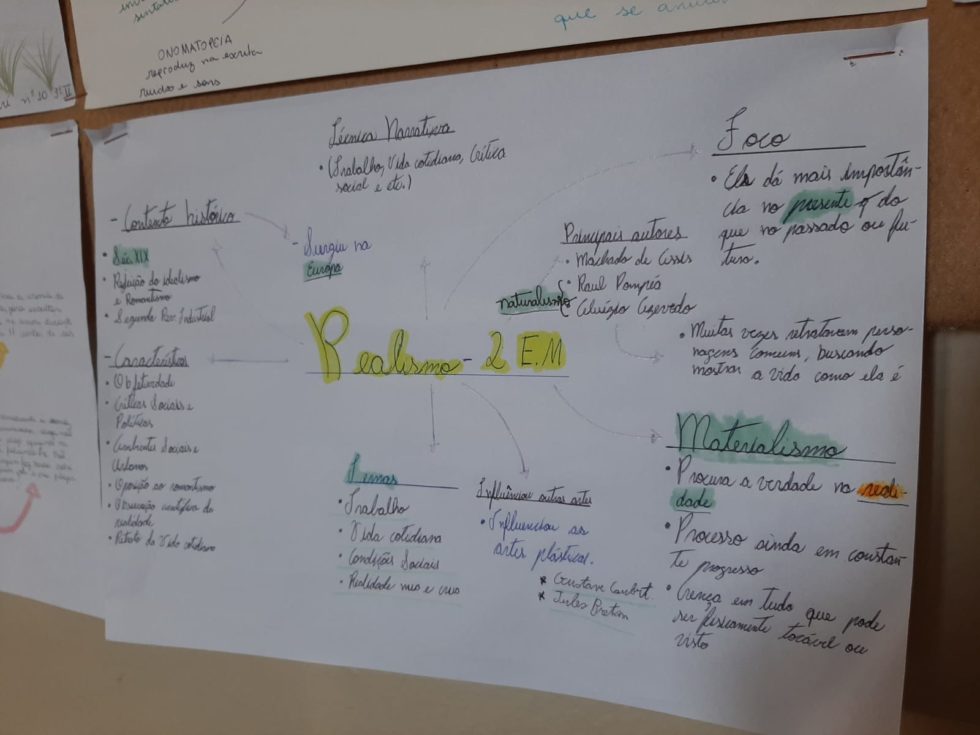 que se
ONOMATOPEIA
reproduz na escrita
ruídos e sons
nº 10
Técnica Narrativa
• (Trabalho, Vida cotidiana, Crítica
social e etc.)
Foco
• Ele dá mais importân-
cia no presente q do
que no passado ou fu-
turo.
- Contexto histórico
• Séc XIX
• Rejeição do idealismo
e Romantismo
• Segunda Rev. Industrial
- Surgiu na
Europa
Principais autores
• Machado de Assis
• Raul Pompéia
naturalismo
• Aluízio Azevedo
• Muitas vezes retratavam perso-
nagens comuns, buscando
mostrar a vida como ela é
Realismo - 2 E.M
- Características
• Objetividade
• Críticas Sociais e
Políticas
• Ambientes Sociais e
Urbanos
• Oposição ao romantismo
• Observação científica da
realidade
• Retrato da Vida cotidiana
Temas
• Trabalho
• Vida cotidiana
• Condições Sociais
• Realidade nua e crua
Influênciou outras artes
• Influenciou as
artes plásticas.
* Gustave Courbet
* Jules Breton
Materialismo
• Procura a verdade na reali-
dade
• Processo ainda em constan-
te progresso
• Crença em tudo que pode
ser fisicamente tocável ou
visto